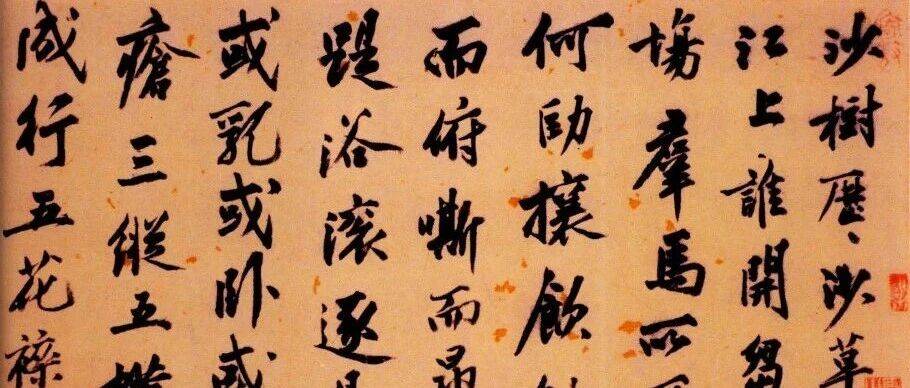 沙樹歷〻沙草
江上誰開芻
場羣馬所
何劻攘飲
而俯嘶而
踶浴滾逐
或乳或卧或
瘡三縱五
成行五花